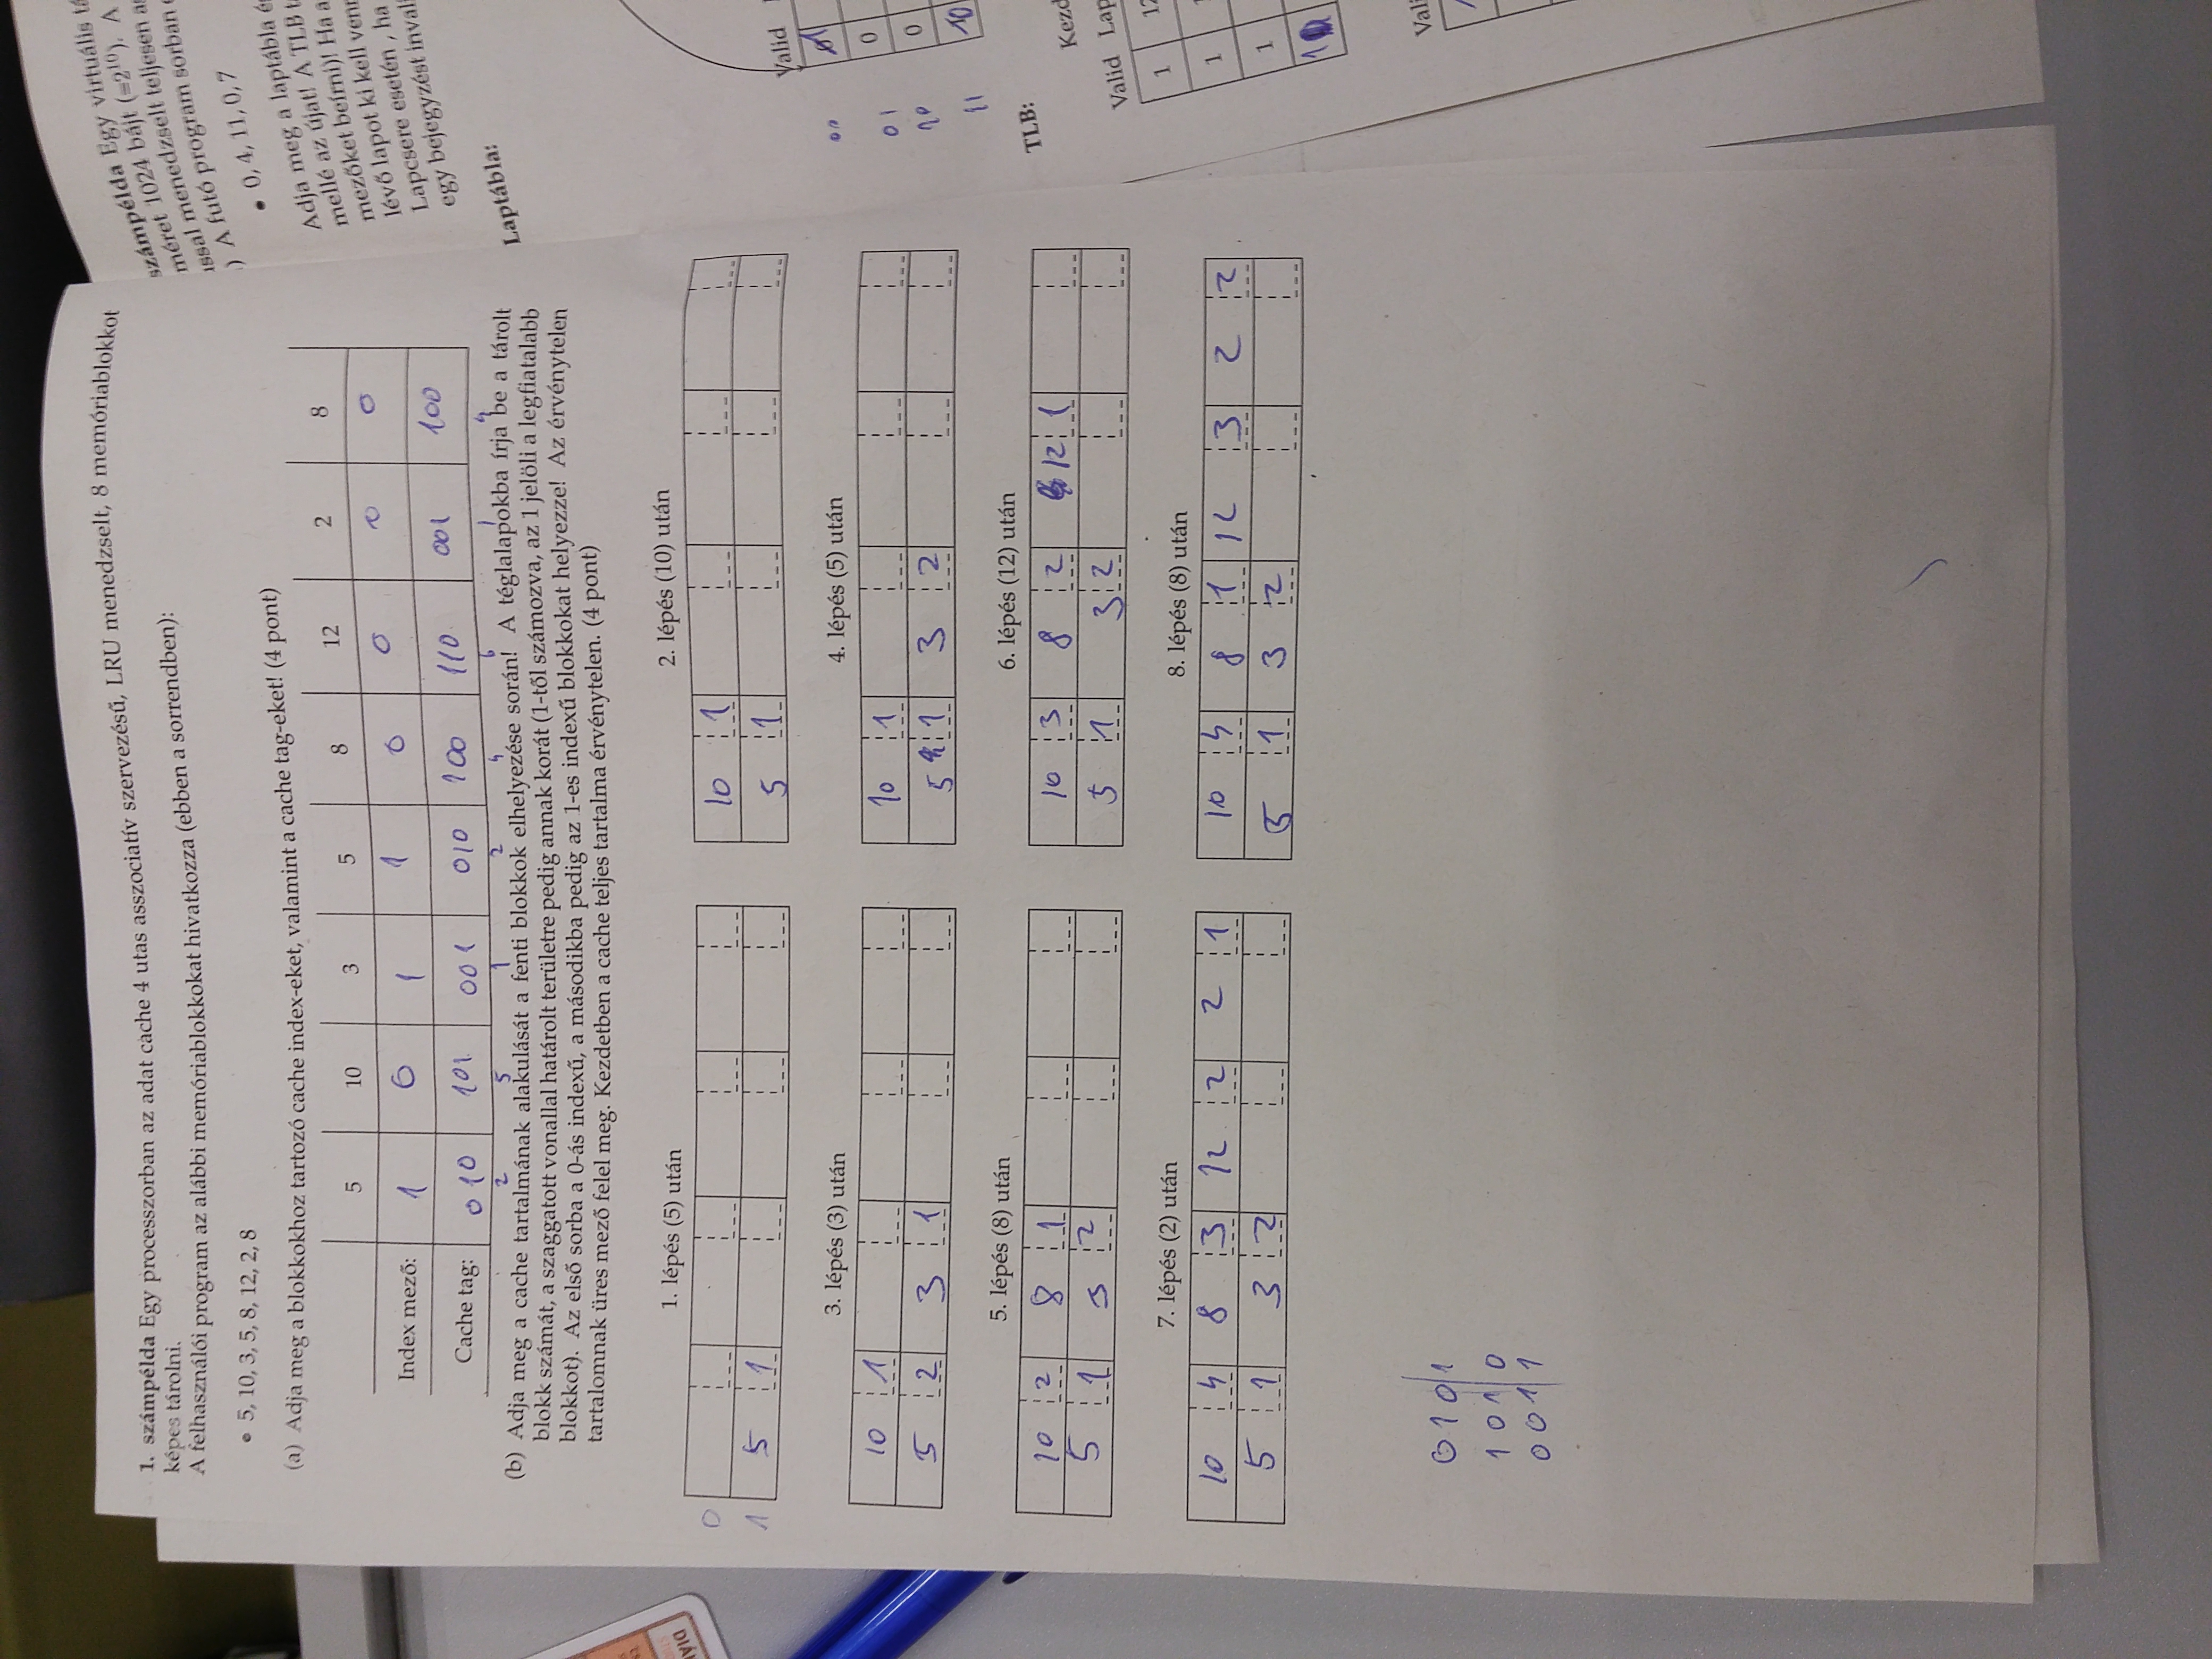 1. számpélda Egy processzorban az adat cache 4 utas asszociatív szervezésű, LRU menedzselt, 8 memóriablokkot
képes tárolni.
A felhasználói program az alábbi memóriablokkokat hivatkozza (ebben a sorrendben):
• 5, 10, 3, 5, 8, 12, 2, 8
(a) Adja meg a blokkokhoz tartozó cache index-eket, valamint a cache tag-eket! (4 pont)
5 10 3 5 8 12 2 8
Index mező: 1 0 1 1 0 0 0 0
Cache tag: 010 101 001 010 100 110 001 100
2 5 1 2 4 6 1 4
(b) Adja meg a cache tartalmának alakulását a fenti blokkok elhelyezése során! A téglalapokba írja be a tárolt
blokk számát, a szaggatott vonallal határolt területre pedig annak korát (1-től számozva, az 1 jelöli a legfiatalabb
blokkot). Az első sorba a 0-ás indexű, a másodikba pedig az 1-es indexű blokkokat helyezze! Az érvénytelen
tartalomnak üres mező felel meg. Kezdetben a cache teljes tartalma érvénytelen. (4 pont)
1. lépés (5) után
0
1 5 1
2. lépés (10) után
10 1
5 1
3. lépés (3) után
10 1
5 2 3 1
4. lépés (5) után
10 1
5 1 3 2
5. lépés (8) után
10 2 8 1
5 1 3 2
6. lépés (12) után
10 3 8 2 12 1
5 1 3 2
7. lépés (2) után
10 4 8 3 12 2 2 1
5 1 3 2
8. lépés (8) után
10 4 8 1 12 3 2 2
5 1 3 2
0101
1010
0011
számpélda Egy virtuális
méret 1024 bájt (=2^10). A
menedzselt teljesen
) A futó program sorban
• 0, 4, 11, 0, 7
Adja meg a laptábla
mellé az újat! A TLB
mezőket beírni)! Ha a
lévő lapot ki kell
Lapcsere esetén , ha
egy bejegyzést
Laptábla:
Valid
00
01 0
10 0
11
TLB:
Valid
1 12
1
1
1